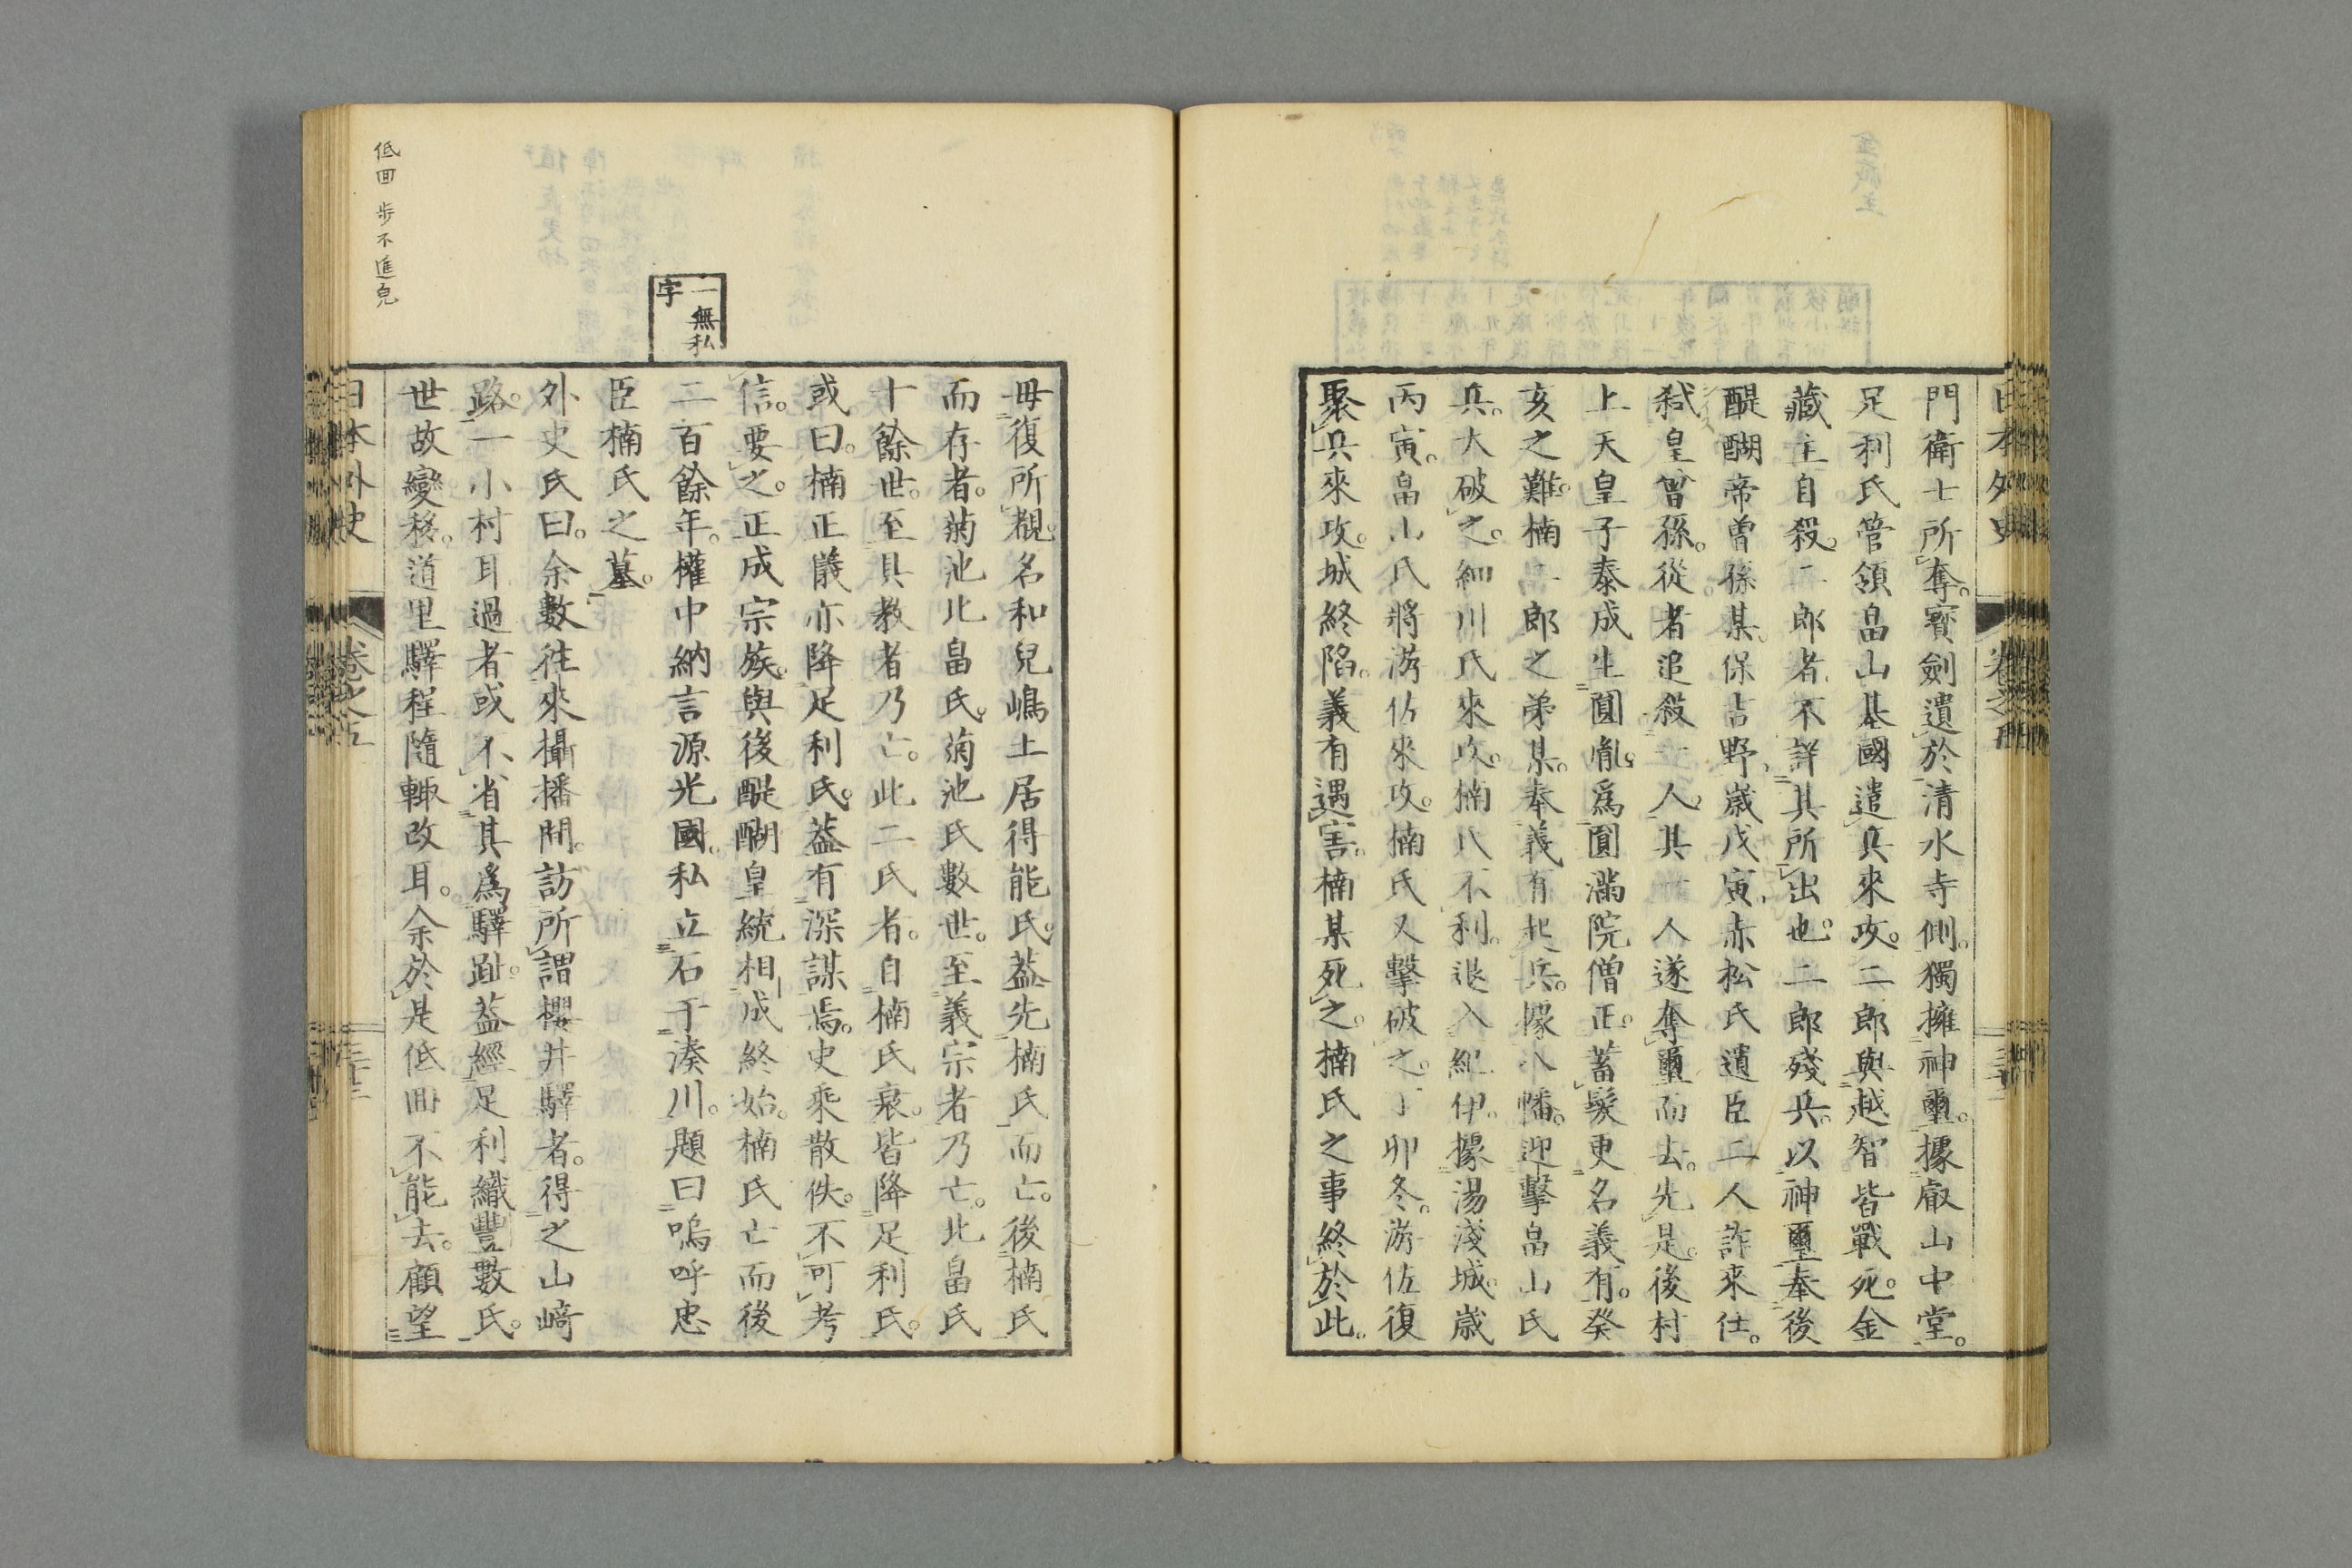 日本外史 卷之五
門衛士所奪。寶劍遺於清水寺側。獨擁神璽。據叡山中堂。
足利氏管領畠山基國遣兵來攻。二郎與越智皆戰死。金
藏主自殺。二郎者不詳其所出也。二郎殘兵。以神璽奉後
醍醐帝曾孫某。保吉野。歳戊寅。赤松氏遺臣二人詐來仕。
弑皇曾孫。從者追殺一人。其一人遂奪璽而去。先是。後村
上天皇子泰成生圓胤。爲圓滿院僧正。蓄髮更名義有。癸
亥之難。楠二郎之弟某。奉義有起兵。據八幡。迎擊畠山氏
兵。大破之。細川氏來攻。楠氏不利。退入紀伊。據湯淺城。歳
丙寅。畠山氏將游佐來攻。楠氏又擊破之。丁卯冬。游佐復
聚兵來攻。城終陷。義有遇害。楠某死之。楠氏之事終於此。
毋復所覩。名和兒嶋土居得能氏。蓋先楠氏而亡。後楠氏
而存者。菊池北畠氏。菊池氏數世。至義宗者乃亡。北畠氏
十餘世。至具教者乃亡。此二氏者。自楠氏衰。皆降足利氏。
或曰。楠正儀亦降足利氏。蓋有深謀焉。史乘散佚。不可考
信。要之。正成宗族。與後醍醐皇統相成終始。楠氏亡而後
二百餘年。權中納言源光國。私立石于湊川。題曰嗚呼忠
臣楠氏之墓。
一無私
字
外史氏曰。余數往來攝播間。訪所謂櫻井驛者。得之山﨑
路。一小村耳。過者或不省其爲驛趾。蓋經足利織豐數氏。
世故變移。道里驛程隨輙改耳。余於是低回不能去。顧望
低回 步不進皃
日本外史 卷之五